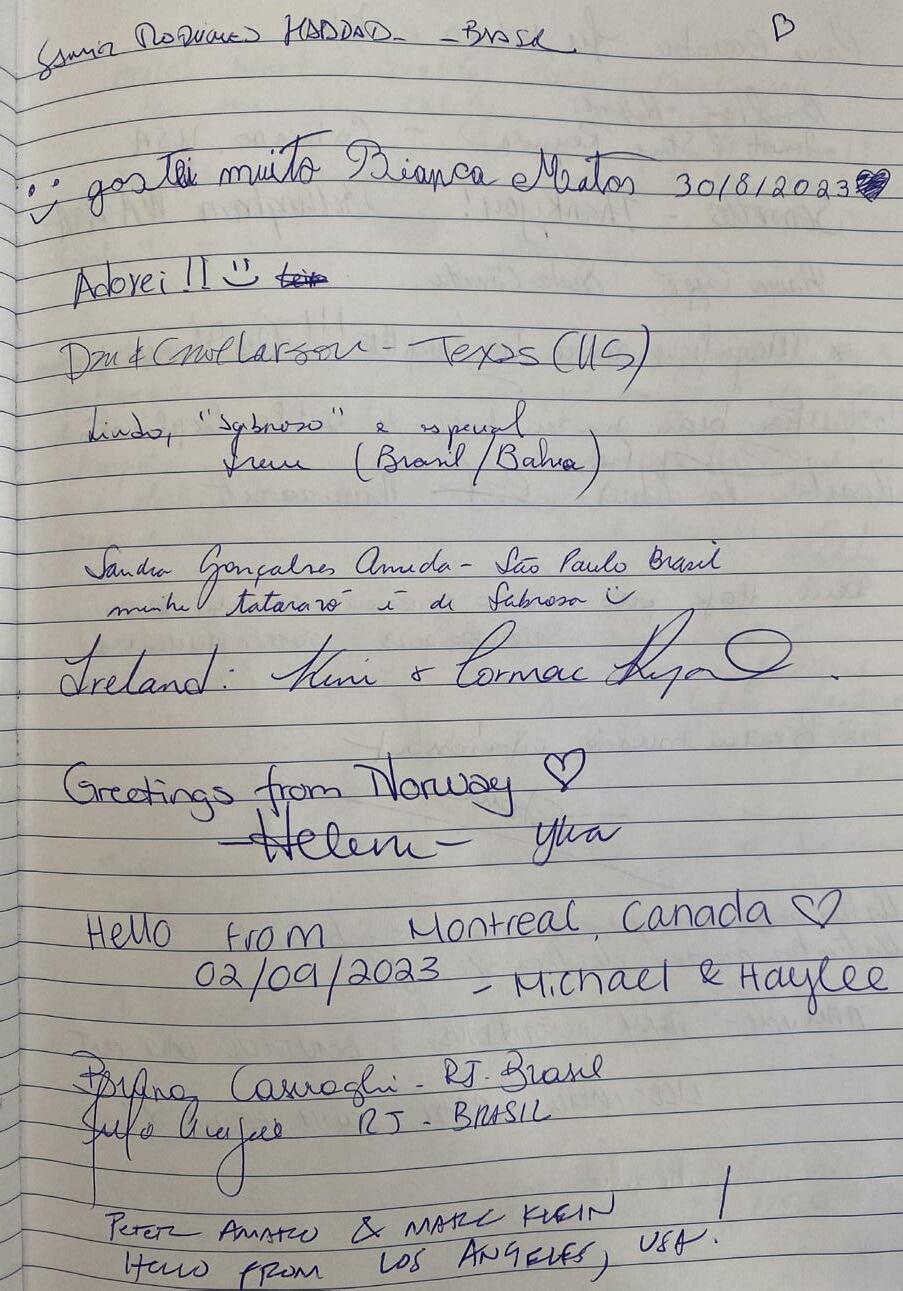 Rodrigues HADDAD - BRASIL
gostei muito Bianca Matos 30/8/2023
Adorei!!
Larson - Texas (US)
Lindo, "Sabroso" e especial
Irene (Brasil/Bahia)
Sandra Gonçalves Arruda - São Paulo Brasil
minha tataravó é de Sabrosa
Ireland: & Cormac Ryan
Greetings from Norway ♡
-Helene- Ylva
Hello from Montreal, Canada ♡
02/09/2023 - Michael & Haylee
RJ. Brasil
RJ - BRASIL
PETER AMARO & MARC KLEIN
HELLO FROM LOS ANGELES, USA!